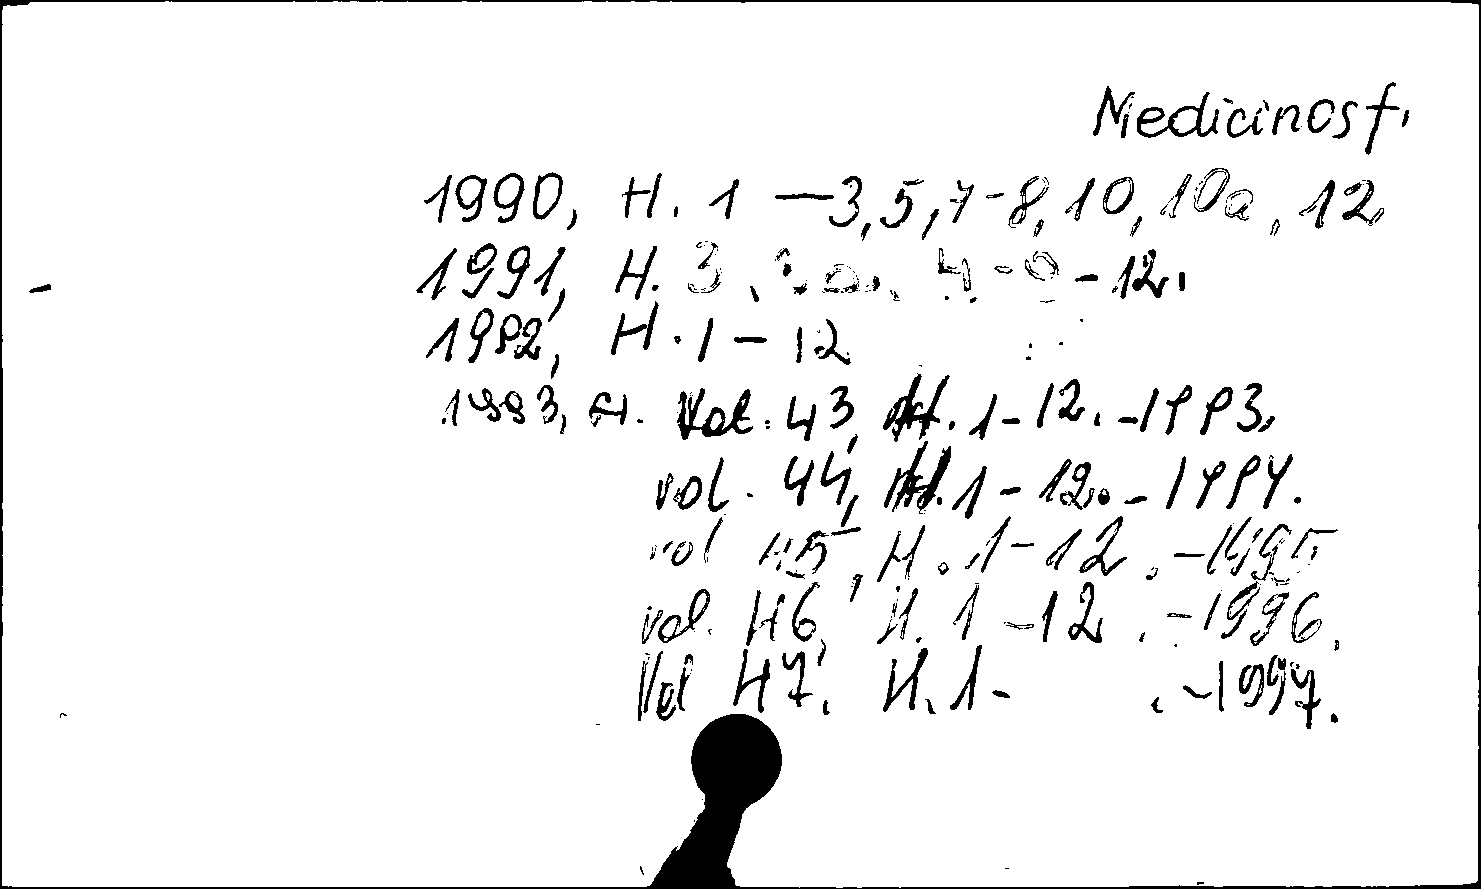 Medicinos f.
1990, H. 1 — 3, 5, 7-8, 10, 10a, 12.
1991, H. 3, 4 - 12.
1992, H. 1 - 12
1993, H. Vol. 43, H. 1 - 12. - 1993.
vol. 44, H. 1 - 12. - 1994.
vol 45, H. 1 - 12. - 1995
vol. 46, H. 1 - 12. - 1996.
Vol 47. H. 1 - . - 1997.